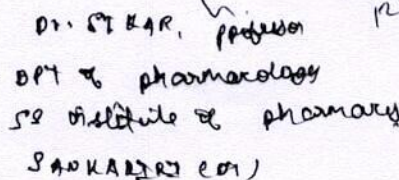 Dr. S7 KAR, professor
DPT of pharmacology
SS institute of pharmacy
SANKARIRI (DT)